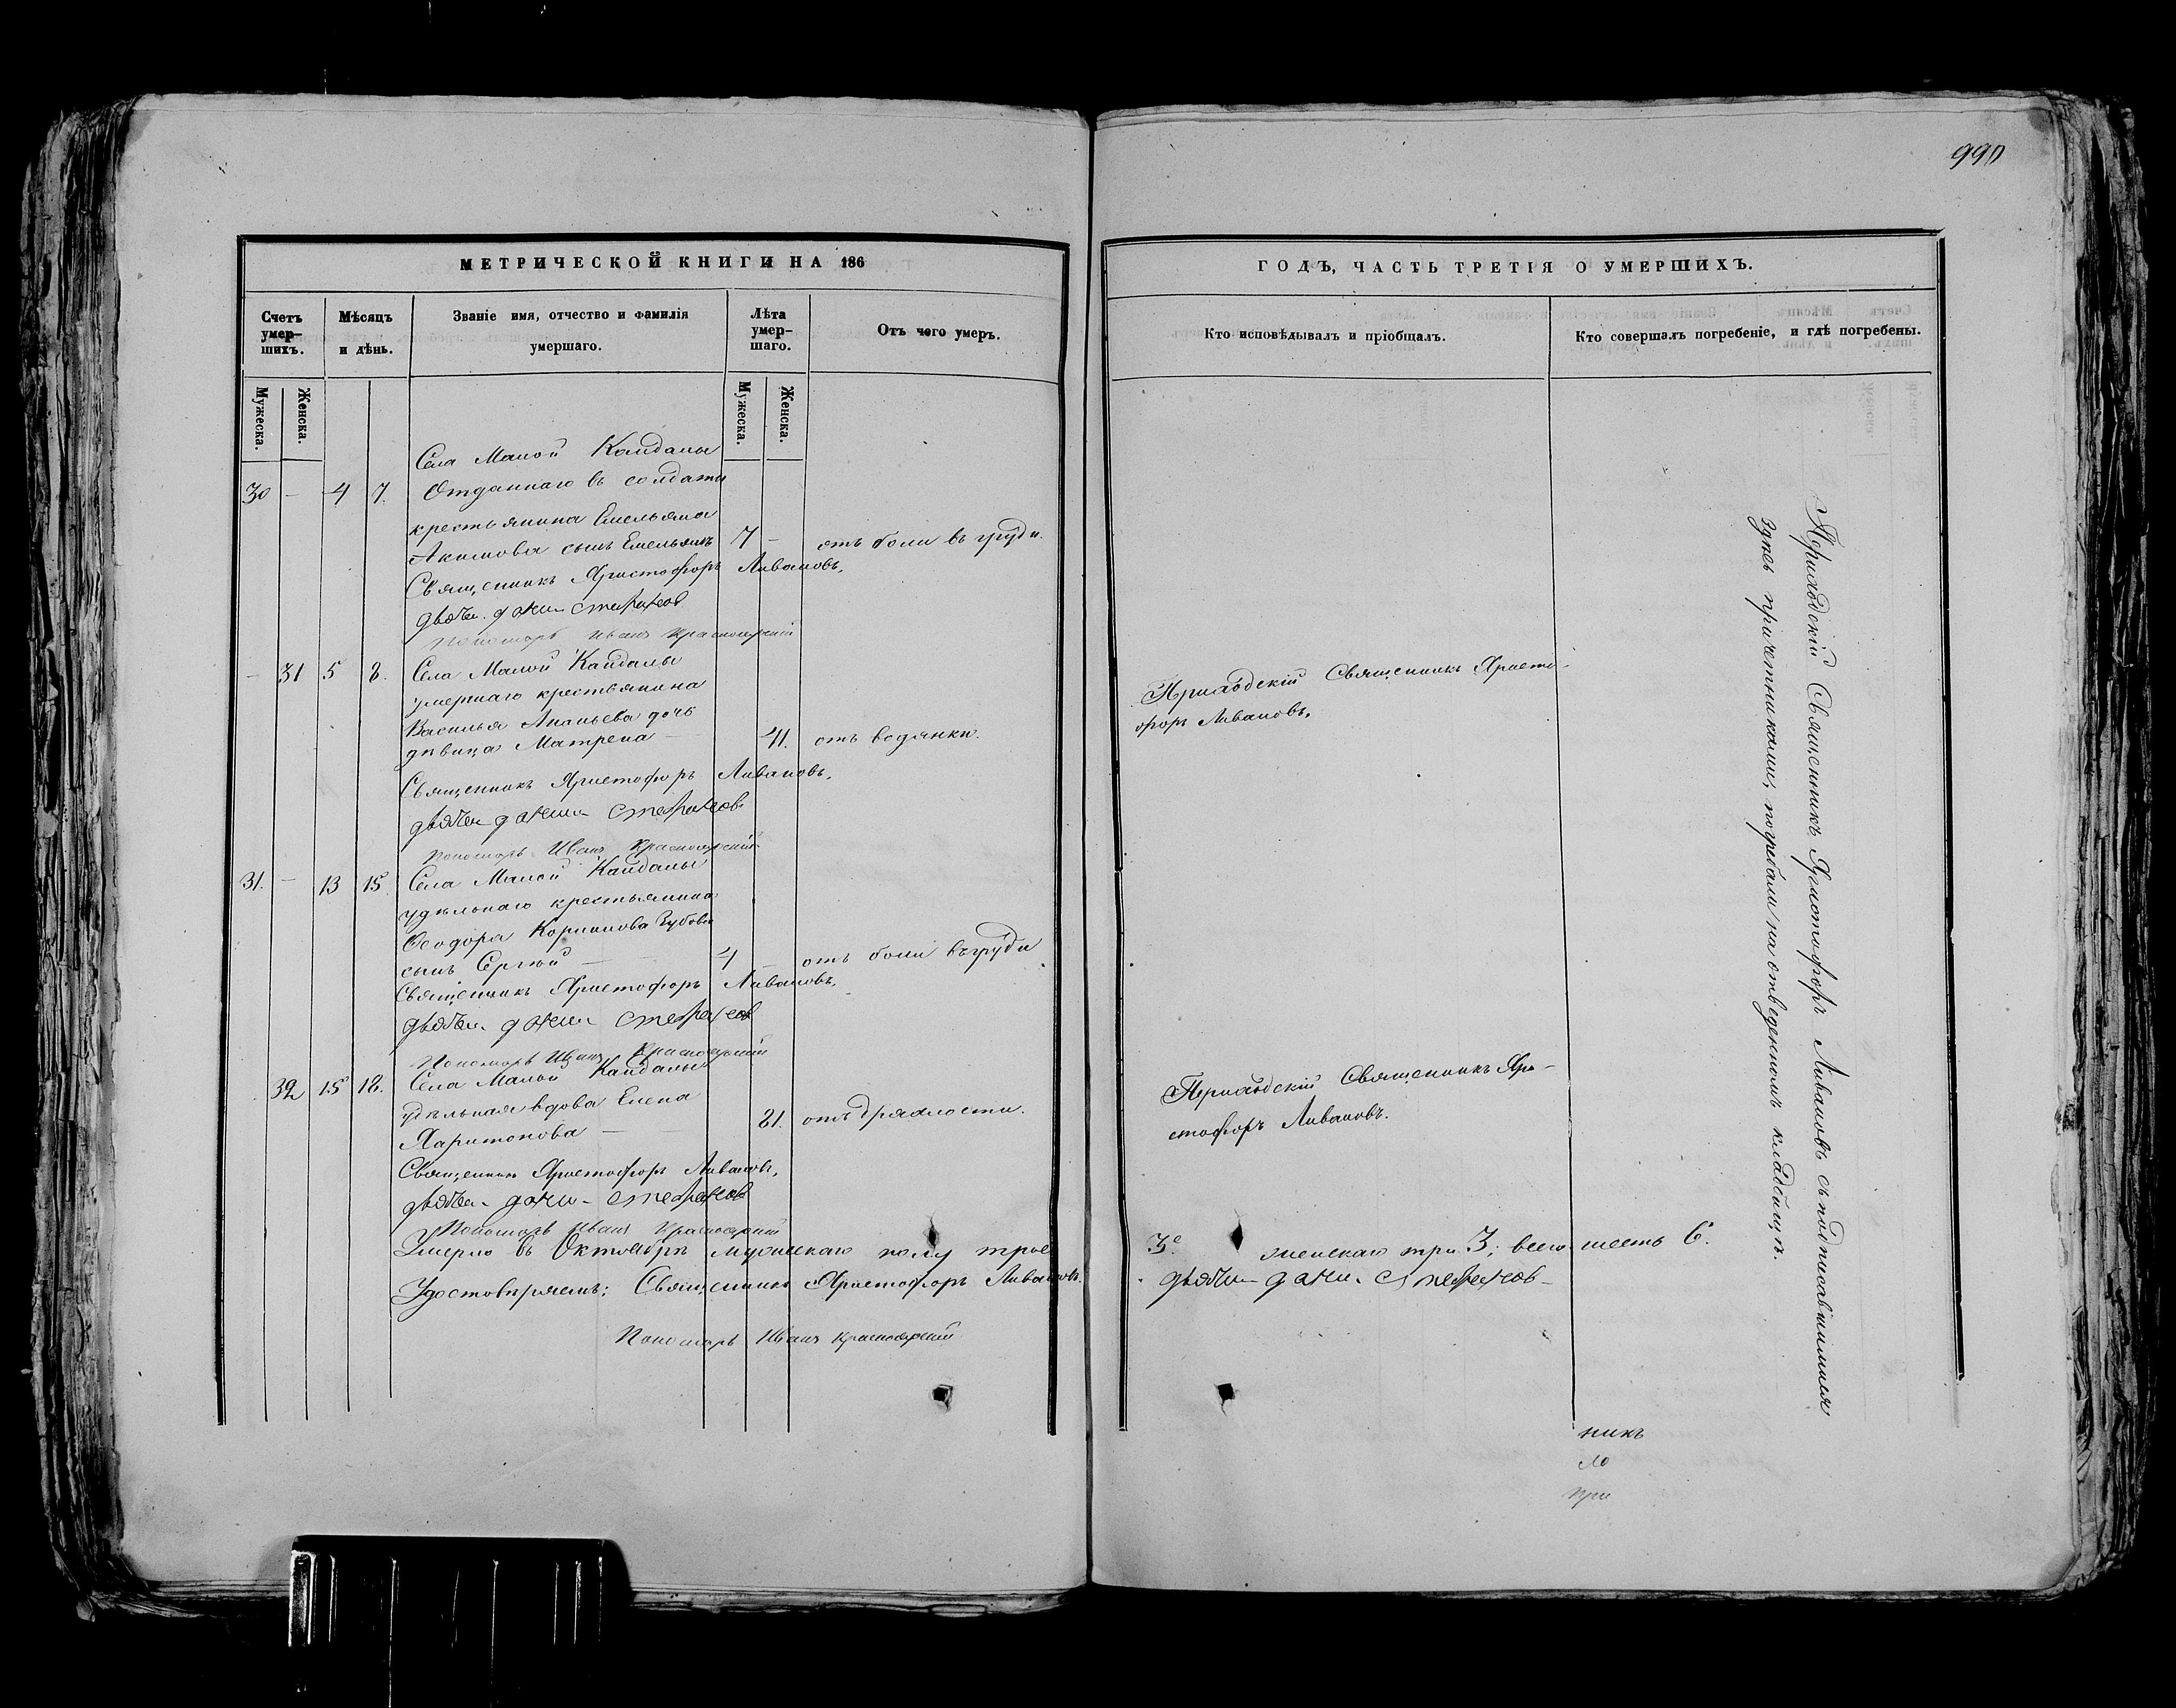 990
МЕТРИЧЕСКОЙ КНИГИ НА 186
Счетъ умер-шихъ.
Мѣсяцъ и дѣнь.
Званіе имя, отчество и фамилія умершаго.
Лѣта умер-шаго.
Отъ чего умеръ.
Мужеска.
Женска.
Мужеска.
Женска.
Села Малой Кандалы
30 - 4 7. Отданнаго въ солдаты
крестьянина Емельяна
Акимова сынъ Емельянъ 7 - отъ боли въ груди.
Священникъ Христофоръ Ливановъ.
дьячекъ
Пономарь Иванъ Красноярскій
- 31 5 8. Села Малой Кандалы
умершаго крестьянина
Василья Ананьева дочь
дѣвица Матрена - 41. отъ водянки.
Священникъ Христофоръ Ливановъ.
дьячекъ
Пономарь Иванъ Красноярскій
31. - 13 15 Села Малой Кандалы
удѣльнаго крестьянина
Ѳеодора Корнилова Зубова
сынъ Сергій - 4 - отъ боли въ груди
Священникъ Христофоръ Ливановъ.
дьячекъ
Пономарь Иванъ Красноярскій
32 15 18. Села Малой Кандалы
удѣльная вдова Елена
Харитонова - 81. отъ дряхлости.
Священникъ Христофоръ Ливановъ.
дьячекъ
Пономарь Иванъ Красноярскій
Умерло въ Октябрѣ мужескаго полу трое
Удостовѣряемъ: Священникъ Христофоръ Ливановъ.
Пономарь Иванъ Красноярскій
ГОДЪ, ЧАСТЬ ТРЕТІЯ О УМЕРШИХЪ.
Кто исповѣдывалъ и пріобщалъ.
Кто совершалъ погребеніе, и гдѣ погребены.
Приходскій Священникъ Христо-
форъ Ливановъ.
Приходскій Священникъ Хри-
стофоръ Ливановъ.
3е женскаго три 3; всего шесть 6.
дьячекъ
Приходскій Священникъ Христофоръ Ливановъ съ подписавшимися
здѣсь причетниками, погребали на отведенномъ кладбищѣ.
никъ
ло
при